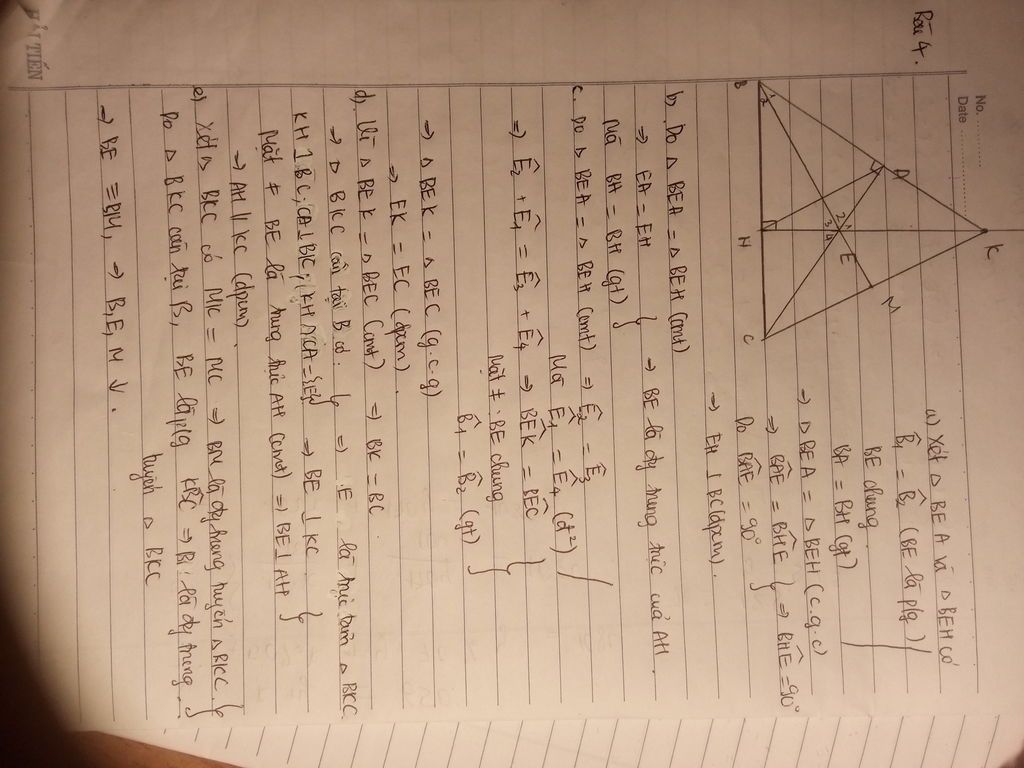 No.
Date
Bài 4.
K
A
M
E
2 1
3 4
B
H
C
a) Xét △ BEA và △ BEH có
B̂₁ = B̂₂ (BE là p/g)
BE chung
BA = BH (gt)
⇒ △ BEA = △ BEH (c.g.c)
⇒ BÂE = BĤE } ⇒ BĤE = 90°
Do BÂE = 90°
⇒ EH ⊥ BC (đpcm).
b) Do △ BEA = △ BEH (cmt)
⇒ EA = EH
Mà BH = BH (gt) } ⇒ BE là đg trung trực của AH.
c. Do △ BEA = △ BEH (cmt) ⇒ Ê₂ = Ê₃
Mà Ê₁ = Ê₄ (đ²)
⇒ Ê₂ + Ê₁ = Ê₃ + Ê₄ ⇒ BÊK = BÊC
Mặt ≠ BE chung
B̂₁ = B̂₂ (gt)
⇒ △ BEK = △ BEC (g.c.g)
⇒ EK = EC (đpcm).
d) Vì △ BEK = △ BEC (cmt) ⇒ BK = BC.
⇒ △ BKC cân tại B
KH ⊥ BC; CA ⊥ BK; KH ∩ CA = {E} ⇒ E là trực tâm △ BKC
⇒ BE ⊥ KC
Mặt ≠ BE là trung trực AH (cmt) ⇒ BE ⊥ AH
⇒ AH // KC (đpcm).
e) Xét △ BKC có MK = MC ⇒ BM là đg trung tuyến △ BKC.
Do △ BKC cân tại B, BE là p/g KB̂C ⇒ BE là đg trung
tuyến △ BKC
⇒ BE ≡ BM, ⇒ B, E, M
HẢI TIẾN